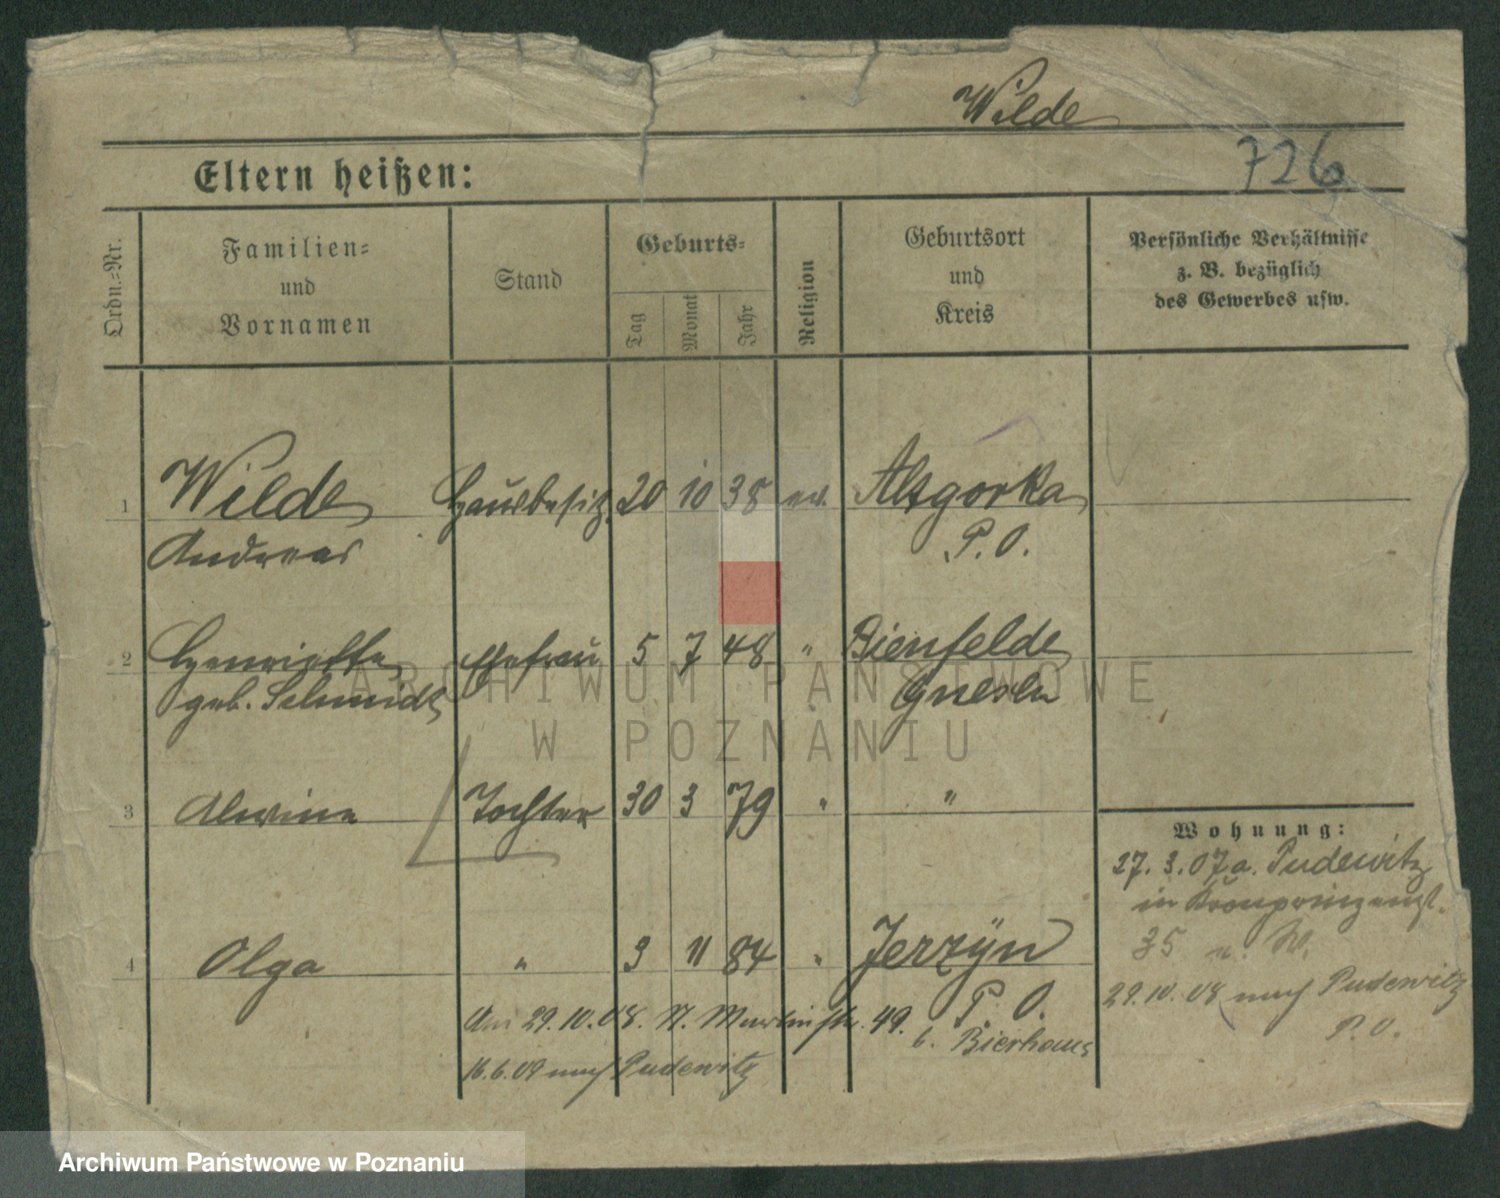 Wilde
Eltern heißen:
726
Ordn.-Nr.
Familien-
und
Vornamen
Stand
Geburts-
Tag
Monat
Jahr
Religion
Geburtsort
und
Kreis
Persönliche Verhältnisse
z. B. bezüglich
des Gewerbes usw.
1 Wilde Hausbesitz. 20 10 38 ev. Altgorka
Andreas P. O.
2 Henriette Ehefrau 5 7 48 " Bienfelde
geb. Schmidt Gnesen
3 Alwine Tochter 30 3 79 " "
4 Olga " 3 11 84 " Jerzÿn
P. O.
Am 29.10.08. N. Martinstr. 49.
b. Bierhaus
16.6.09 nach Pudewitz
Wohnung:
27. 3. 07 a. Pudewitz
in Kronprinzenst.
35 W.
29.10.08 nach Pudewitz
P. O.
ARCHIWUM PAŃSTWOWE
W POZNANIU
Archiwum Państwowe w Poznaniu